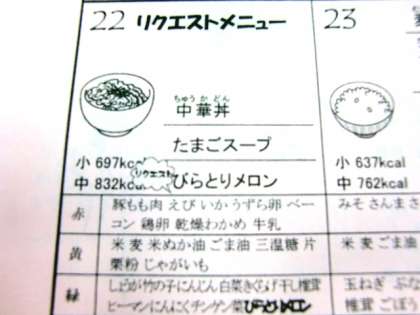 22 リクエストメニュー
ちゅうかどん
中華丼
たまごスープ
リクエスト
びらとりメロン
小 697kcal
中 832kcal
赤 豚もも肉 えび いか うずら卵 ベー
コン 鶏卵 乾燥わかめ 牛乳
黄 米 麦 米ぬか油 ごま油 三温糖 片
栗粉 じゃがいも
緑 しょうが 竹の子 にんじん 白菜 きくらげ 干し椎茸
ピーマン にんにく チンゲン菜 びらとりメロン
23
小 637kcal
中 762kcal
みそ さんま さ
米 麦 ごま
玉ねぎ
椎茸 ごぼう